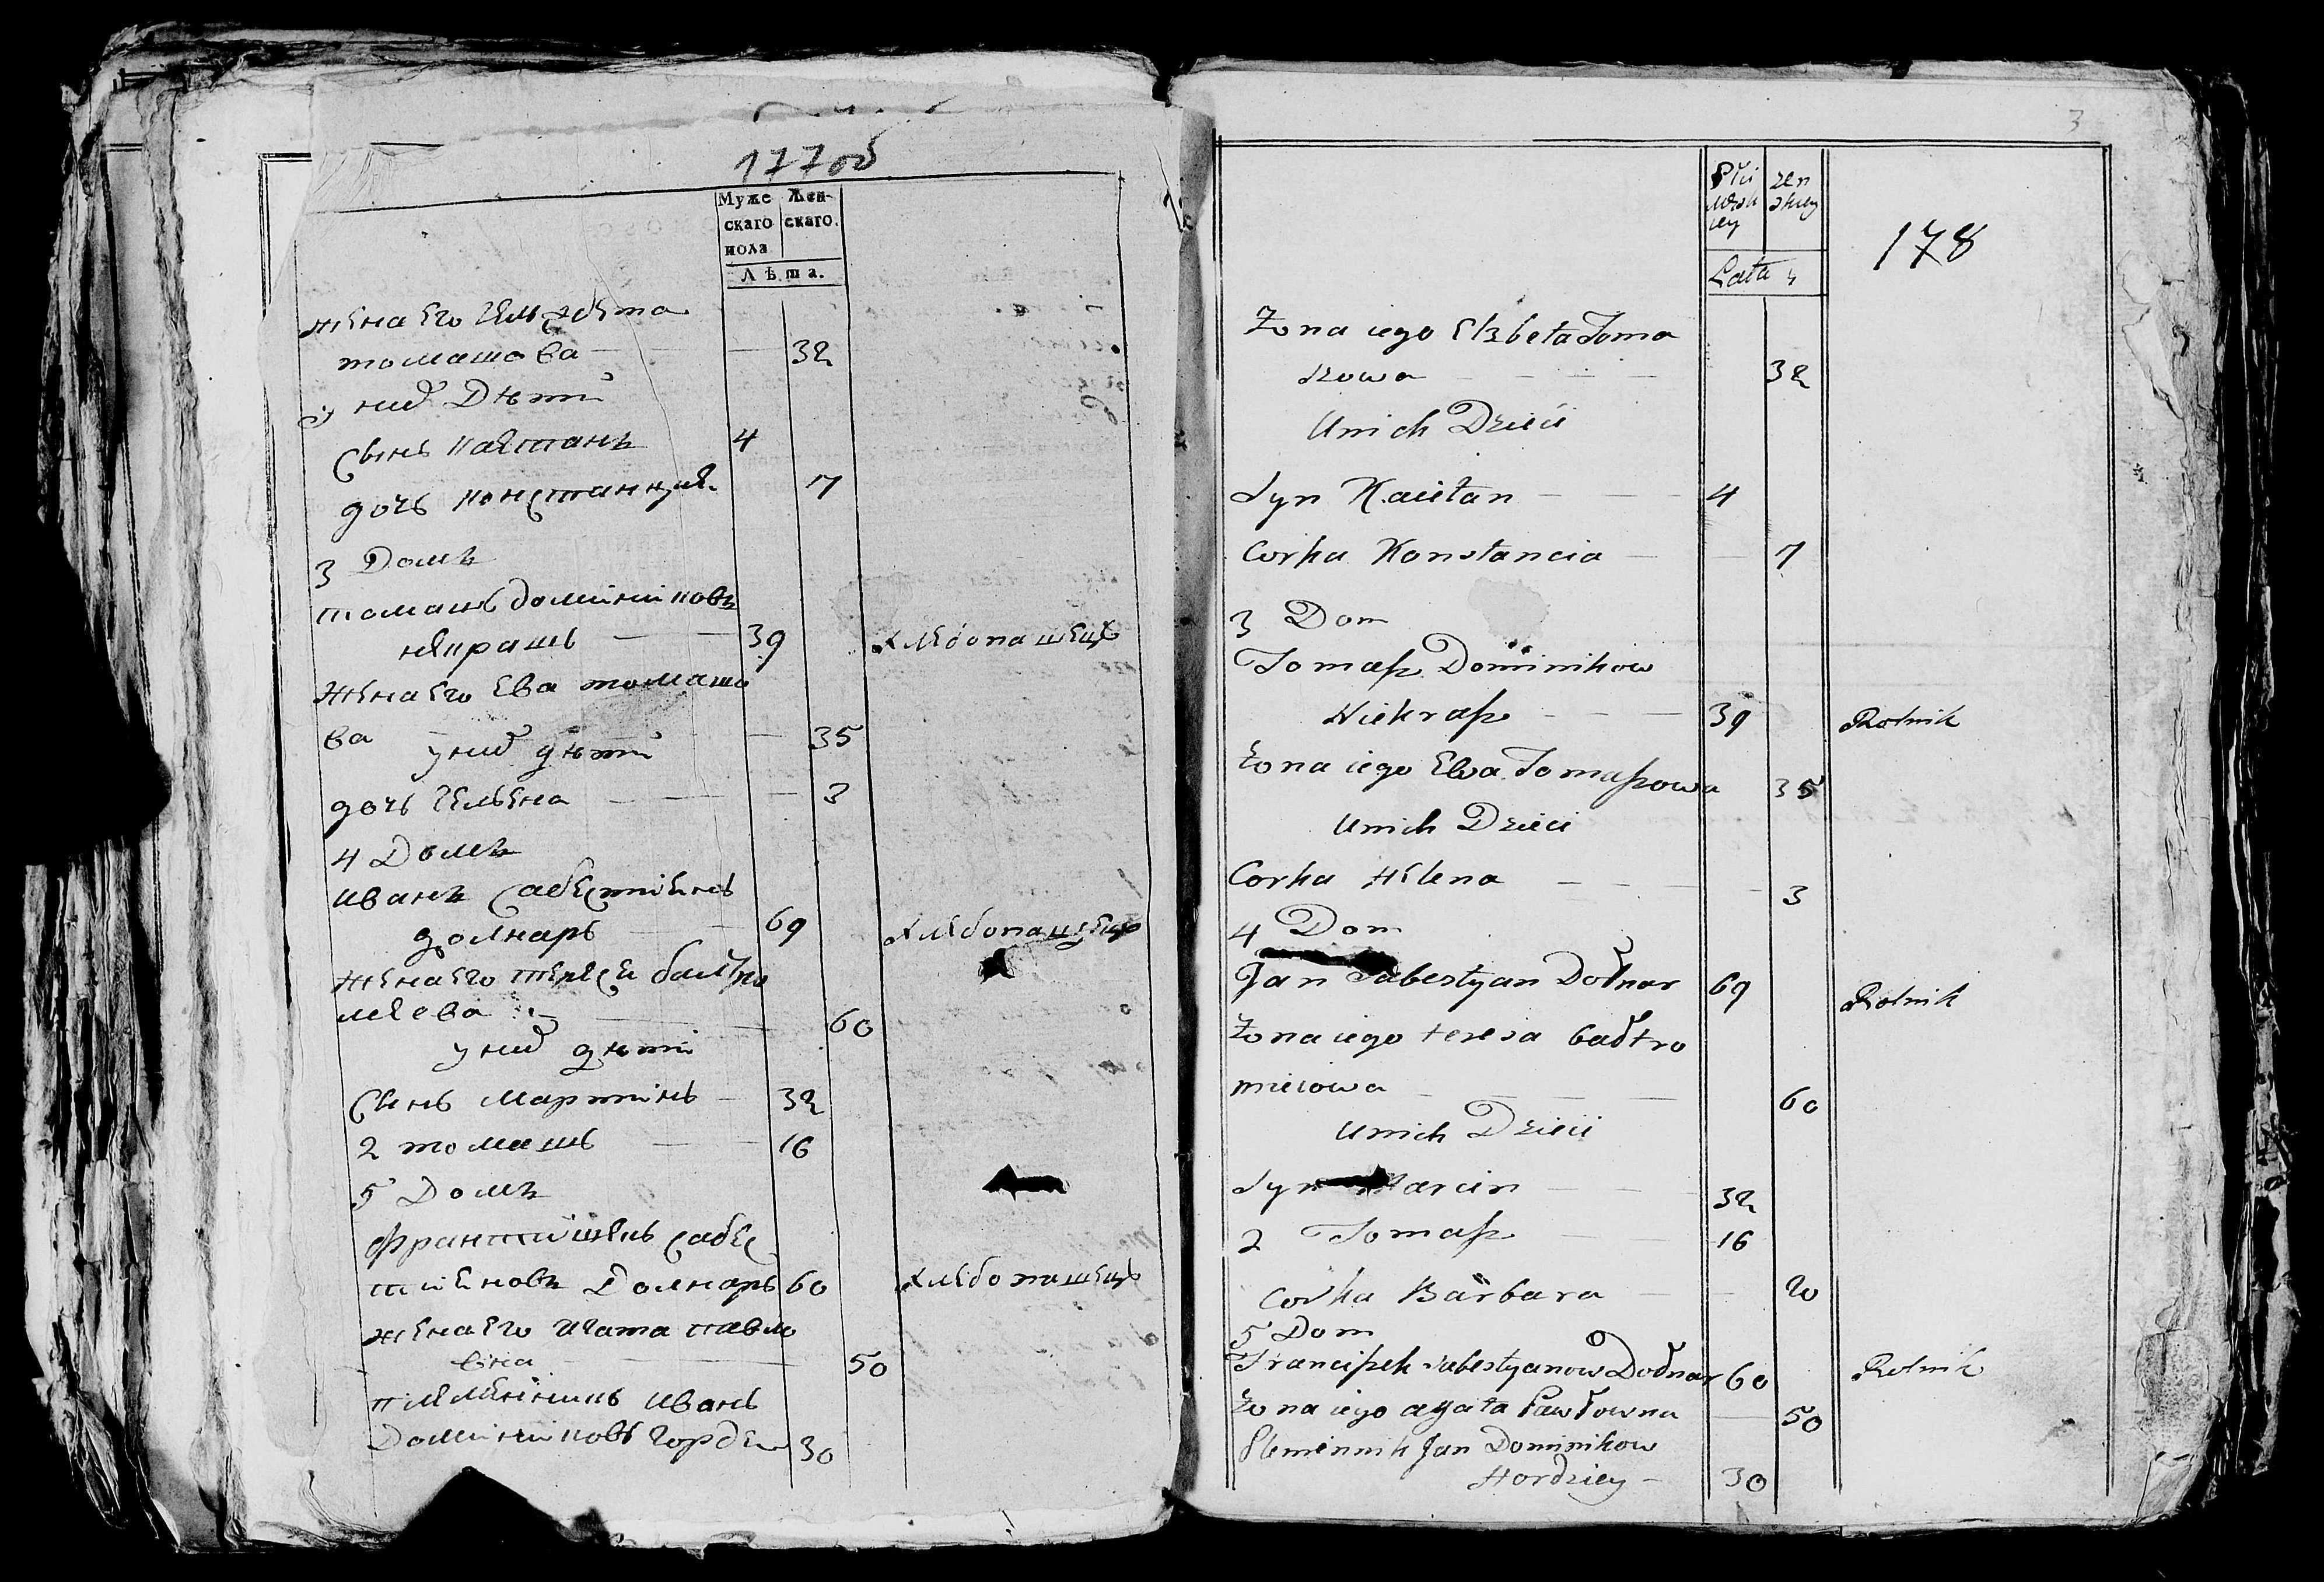 177 об
Муже
скаго
пола
Жен-
скаго.
Лѣта.
жена его Гельжбета
томашова 32
у нихъ Дѣти
Сынъ каетанъ 4
дочь констанція 7
3 Домъ
томашъ доминиковъ
некрашъ 39 хлебопашецъ
жена его Ева томашо
ва 35
у нихъ дѣти
дочь Гельена 3
4 Домъ
иванъ Сабестіенъ
долнаръ 69 хлебопашецъ
жена его тереса балтро
меева 60
у нихъ дѣти
Синъ мартинъ 32
2 томашъ 16
5 Домъ
францишекъ сабес
тиеновъ Долнаръ 60 хлебопашецъ
жена его Агата павло
вна 50
племенникъ иванъ
Доминиковъ Гордей 30
3
Płci
męsk
iey
żen
skiey
Lata
178
Żona iego Elzbeta Toma
szowa 32
U nich Dzieci
Syn Kaietan 4
Corka Konstancia 7
3 Dom
Tomasz Dominikow
Niekrasz 39 Rolnik
Żona iego Ewa Tomaszowa 35
U nich Dzieci
Corka Helena 3
4 Dom
Jan Sabestyan Dołnar 69 Rolnik
Żona iego teresa bałtro
mieiowa 60
U nich Dzieci
Syn Marcin 32
2 Tomasz 16
Corka Barbara 20
5 Dom
Franciszek Sabestyanow Dołnar 60 Rolnik
Żona iego agata Pawłowna 50
Plemiennik Jan Dominikow
Hordziey 30